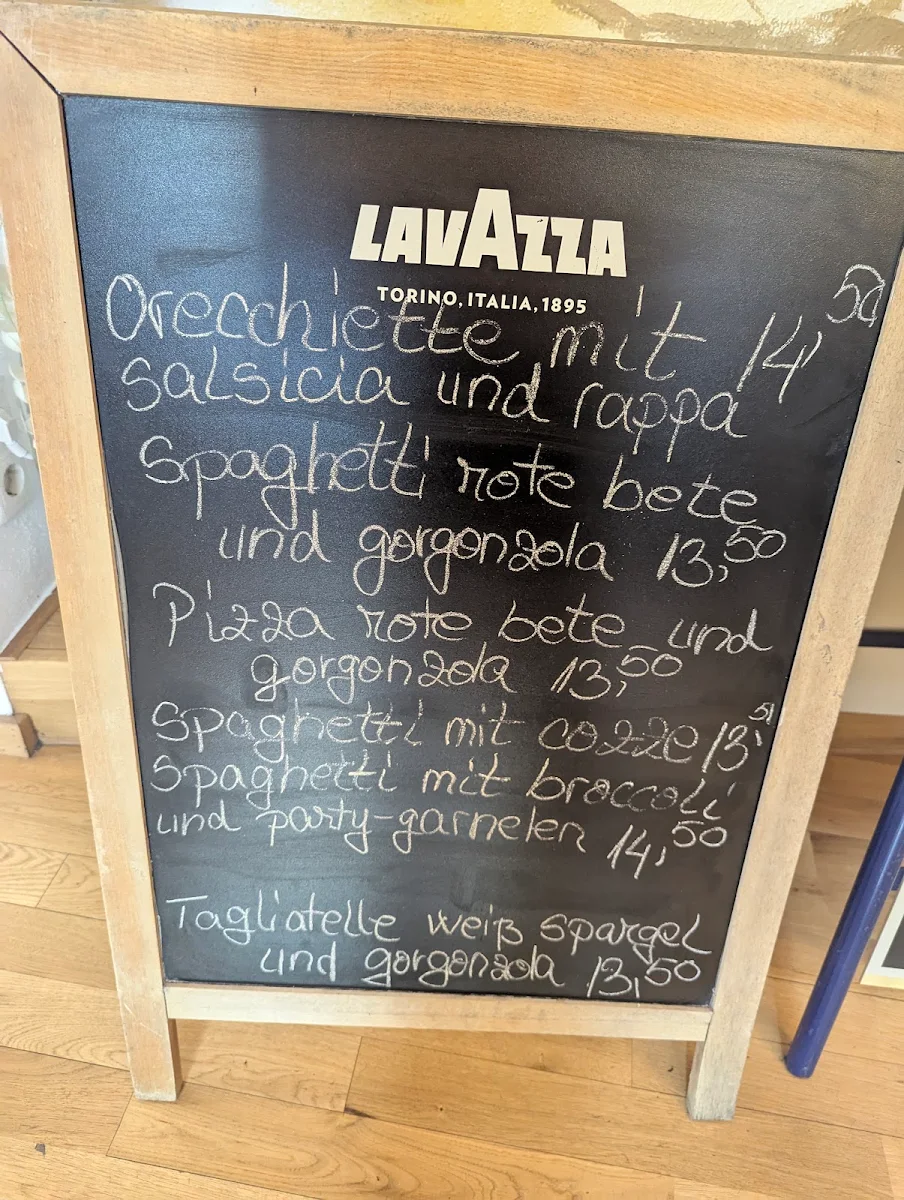 LAVAZZA
TORINO, ITALIA, 1895
Orecchiette mit 14,50
salsicia und rappa
Spaghetti rote bete
und gorgonzola 13,50
Pizza rote bete und
gorgonzola 13,50
Spaghetti mit cozze 13,50
Spaghetti mit broccoli
und party-garnelen 14,50
Tagliatelle weiß spargel
und gorgonzola 13,50